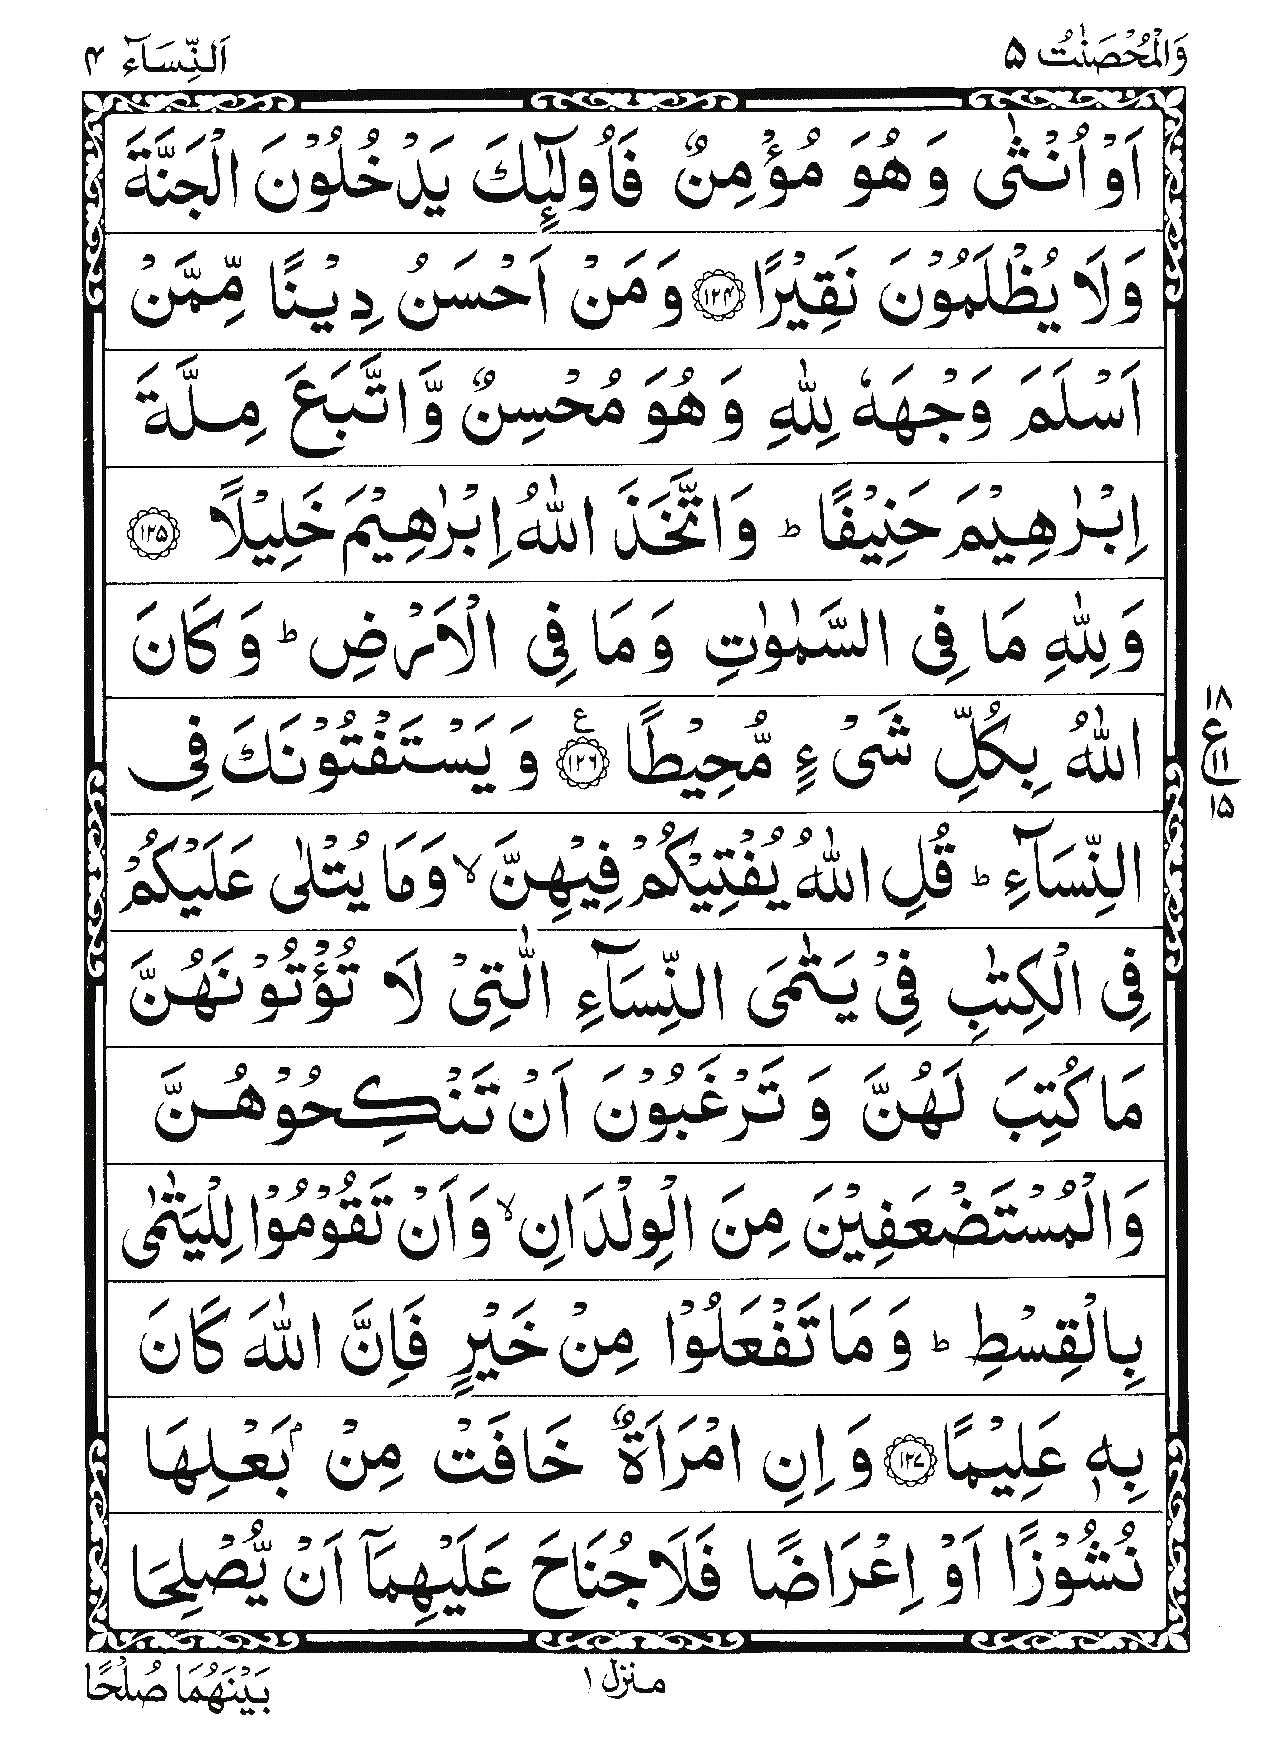 وَالْمُحْصَنٰتُ ۵
اَلنِّسَآء ۴
اَوْ اُنْثٰى وَ هُوَ مُؤْمِنٌ فَاُولٰٓئِكَ يَدْخُلُوْنَ الْجَنَّةَ
وَلَا يُظْلَمُوْنَ نَقِيْرًا ۱۲۴ وَ مَنْ اَحْسَنُ دِيْنًا مِّمَّنْ
اَسْلَمَ وَجْهَهٗ لِلّٰهِ وَ هُوَ مُحْسِنٌ وَّ اتَّبَعَ مِلَّةَ
اِبْرٰهِيْمَ حَنِيْفًا ؕ وَاتَّخَذَ اللّٰهُ اِبْرٰهِيْمَ خَلِيْلًا ۱۲۵
وَ لِلّٰهِ مَا فِى السَّمٰوٰتِ وَ مَا فِى الْاَرْضِ ؕ وَ كَانَ
اللّٰهُ بِكُلِّ شَىْءٍ مُّحِيْطًا ۱۲۶ ع وَ يَسْتَفْتُوْنَكَ فِى
۱۸
ع
۱۱
۱۵
النِّسَآءِ ؕ قُلِ اللّٰهُ يُفْتِيْكُمْ فِيْهِنَّ ۙ وَمَا يُتْلٰى عَلَيْكُمْ
فِى الْكِتٰبِ فِىْ يَتٰمَى النِّسَآءِ الّٰتِىْ لَا تُؤْتُوْنَهُنَّ
مَا كُتِبَ لَهُنَّ وَ تَرْغَبُوْنَ اَنْ تَنْكِحُوْهُنَّ
وَالْمُسْتَضْعَفِيْنَ مِنَ الْوِلْدَانِ ۙ وَاَنْ تَقُوْمُوْا لِلْيَتٰمٰى
بِالْقِسْطِ ؕ وَ مَا تَفْعَلُوْا مِنْ خَيْرٍ فَاِنَّ اللّٰهَ كَانَ
بِهٖ عَلِيْمًا ۱۲۷ وَ اِنِ امْرَاَةٌ خَافَتْ مِنْۢ بَعْلِهَا
نُشُوْزًا اَوْ اِعْرَاضًا فَلَا جُنَاحَ عَلَيْهِمَآ اَنْ يُّصْلِحَا
منزل ۱
بَيْنَهُمَا صُلْحًا